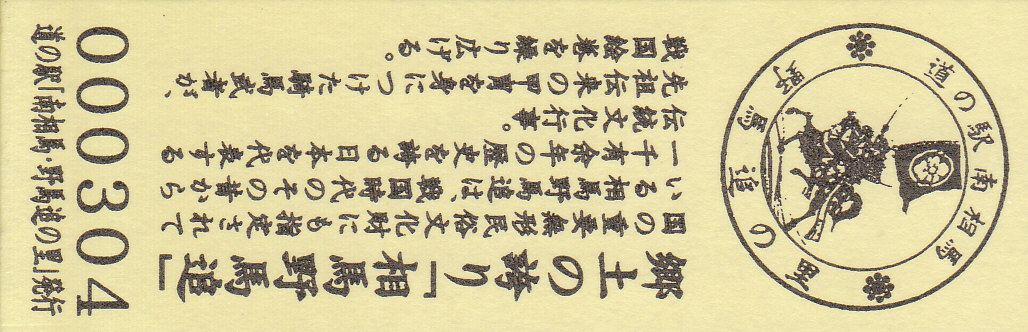 道の駅 南相馬
野馬追の里
郷土の誇り「相馬野馬追」
国の重要無形民俗文化財にも指定されて
いる相馬野馬追は、戦国時代のその昔から
一千有余年の歴史を誇る日本を代表する
伝統文化行事。
先祖伝来の甲冑を身につけた騎馬武者が、
戦国絵巻を繰り広げる。
000304
道の駅「南相馬・野馬追の里」発行